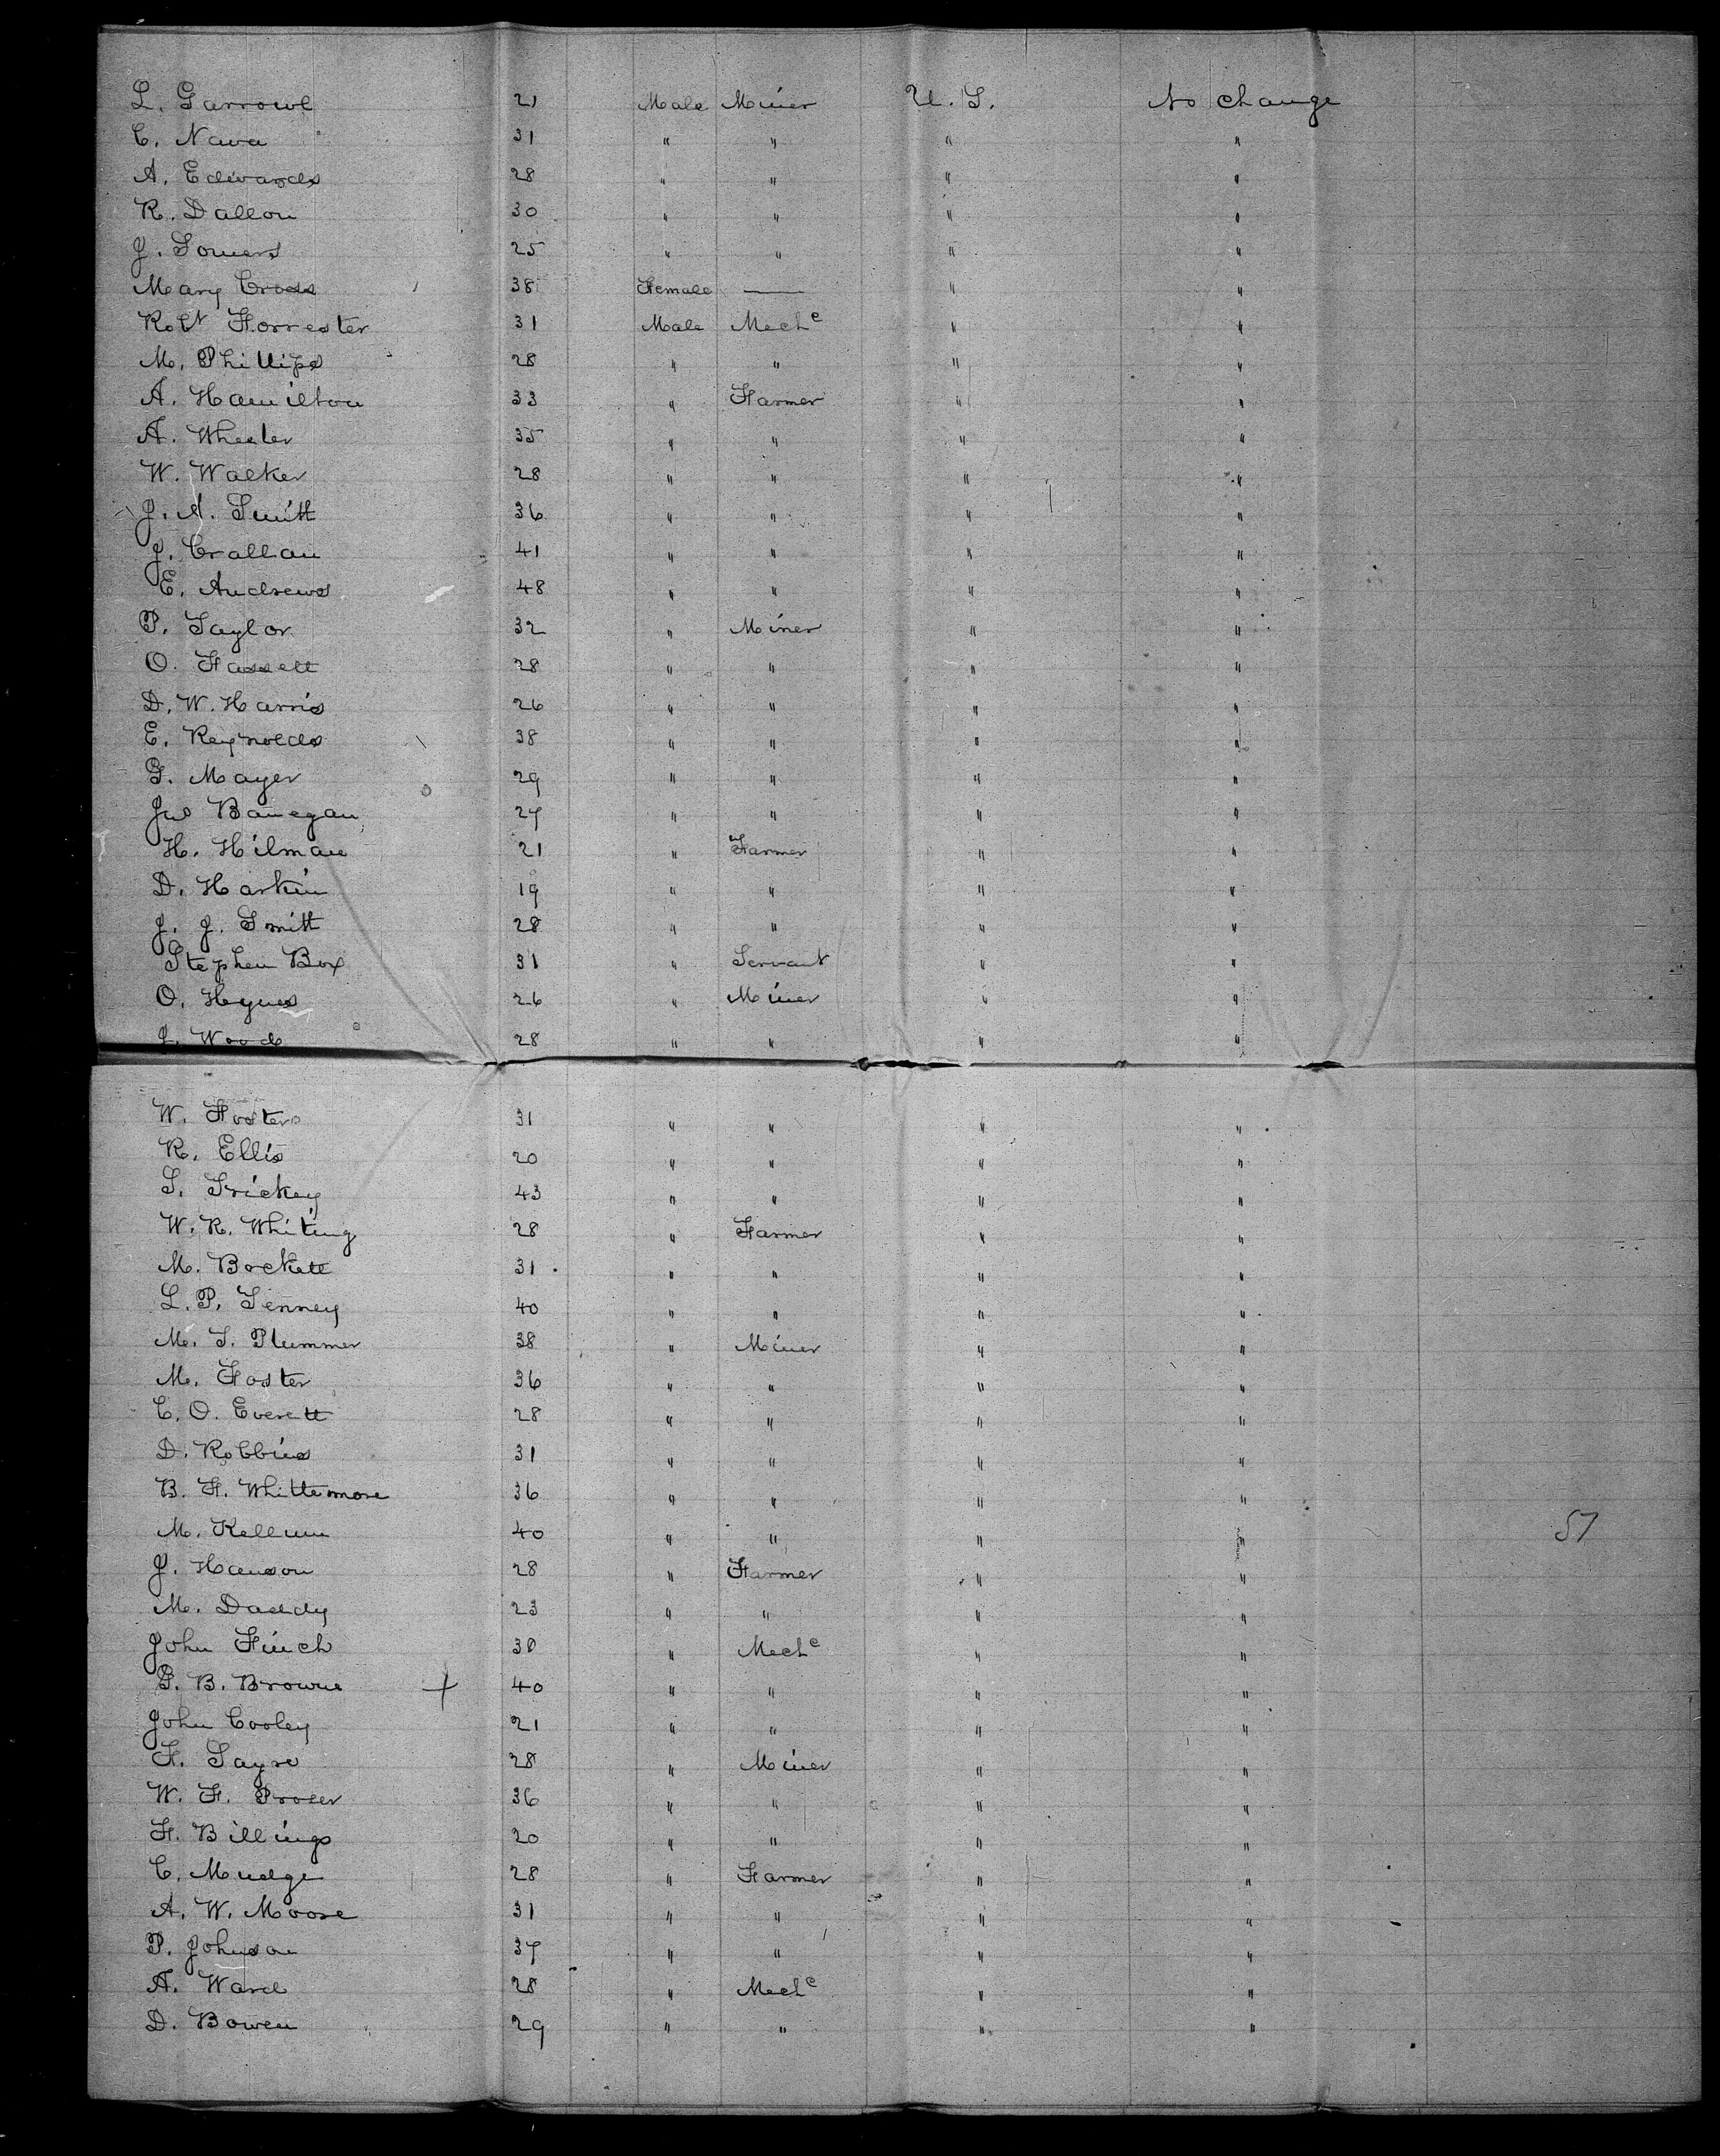 L. Garrowe 21 Male Miner U.S. No change
C. Nava 31 " " " "
A. Edwards 28 " " " "
R. Dallon 30 " " " "
J. Somers 25 " " " "
Mary Cross 38 Female — " "
Robt Forrester 31 Male Mech^c " "
M. Phillips 28 " " " "
A. Hamilton 33 " Farmer " "
A. Wheeler 35 " " " "
W. Walker 28 " " " "
J. A. Smith 36 " " " "
J. Crallan 41 " " " "
E. Andrews 48 " " " "
P. Taylor 32 " Miner " "
O. Fassett 28 " " " "
D. W. Harris 26 " " " "
E. Reynolds 38 " " " "
G. Mayer 29 " " " "
Jno Banegan 27 " " " "
H. Hilman 21 " Farmer " "
D. Harkin 19 " " " "
J. J. Smith 28 " " " "
Stephen Box 31 " Servant " "
O. Heynes 26 " Miner " "
J. Woods 28 " " " "
W. Foster 31 " " " "
R. Ellis 20 " " " "
S. Trickey 43 " " " "
W. R. Whiting 28 " Farmer " "
M. Bockett 31 " " " "
L. P. Tenney 40 " " " "
M. S. Plummer 38 " Miner " "
M. Foster 36 " " " "
C. O. Everett 28 " " " "
D. Robbins 31 " " " "
B. F. Whittemore 36 " " " "
M. Kellum 40 " " " " 57
J. Hanson 28 " Farmer " "
M. Daddy 23 " " " "
John Finch 30 " Mech^c " "
G. B. Browne + 40 " " " "
John Cooley 21 " " " "
F. Sayre 28 " Miner " "
W. F. Proser 36 " " " "
F. Billings 20 " " " "
C. Mudge 28 " Farmer " "
A. W. Moore 31 " " " "
P. Johnson 37 " " " "
A. Ward 28 " Mech^c " "
D. Bowen 29 " " " "